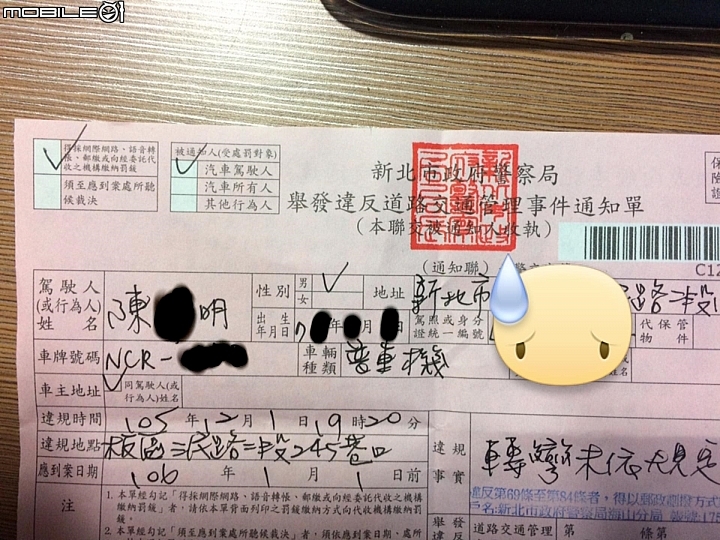 MOBILE01
得採網際網路、語音轉帳、郵繳或向經委託代收之機構繳納罰鍰
須至應到案處所聽候裁決
被通知人(受處罰對象)
汽車駕駛人
汽車所有人
其他行為人
新北市政府警察局
舉發違反道路交通管理事件通知單
(本聯交被通知人收執)
(通知聯)
C12
駕駛人(或行為人)姓名 陳 明
性別 男 女
地址 新北市 路 段
出生年月日 年 月 日
駕照或身分證統一編號
代保管物件
車牌號碼 NCR-
車輛種類 普重機
車主地址 同駕駛人(或行為人)姓名
違規時間 105年12月1日19時20分
違規地點 板橋區三民路二段245巷口
違規事實 轉彎未依規定
應到案日期 106年1月1日前
違反第69條至第84條者，得以郵政劃撥方式
戶名:新北市政府警察局海山分局 帳號:175
注
1.本單經勾記「得採網際網路、語音轉帳、郵繳或向經委託代收之機構繳納罰鍰」者，請依本單背面所列之罰鍰繳納方式向代收機構繳納罰鍰。
2.本單經勾記「須至應到案處所聽候裁決」者，須依應到案日期
道路交通管理 第 條第